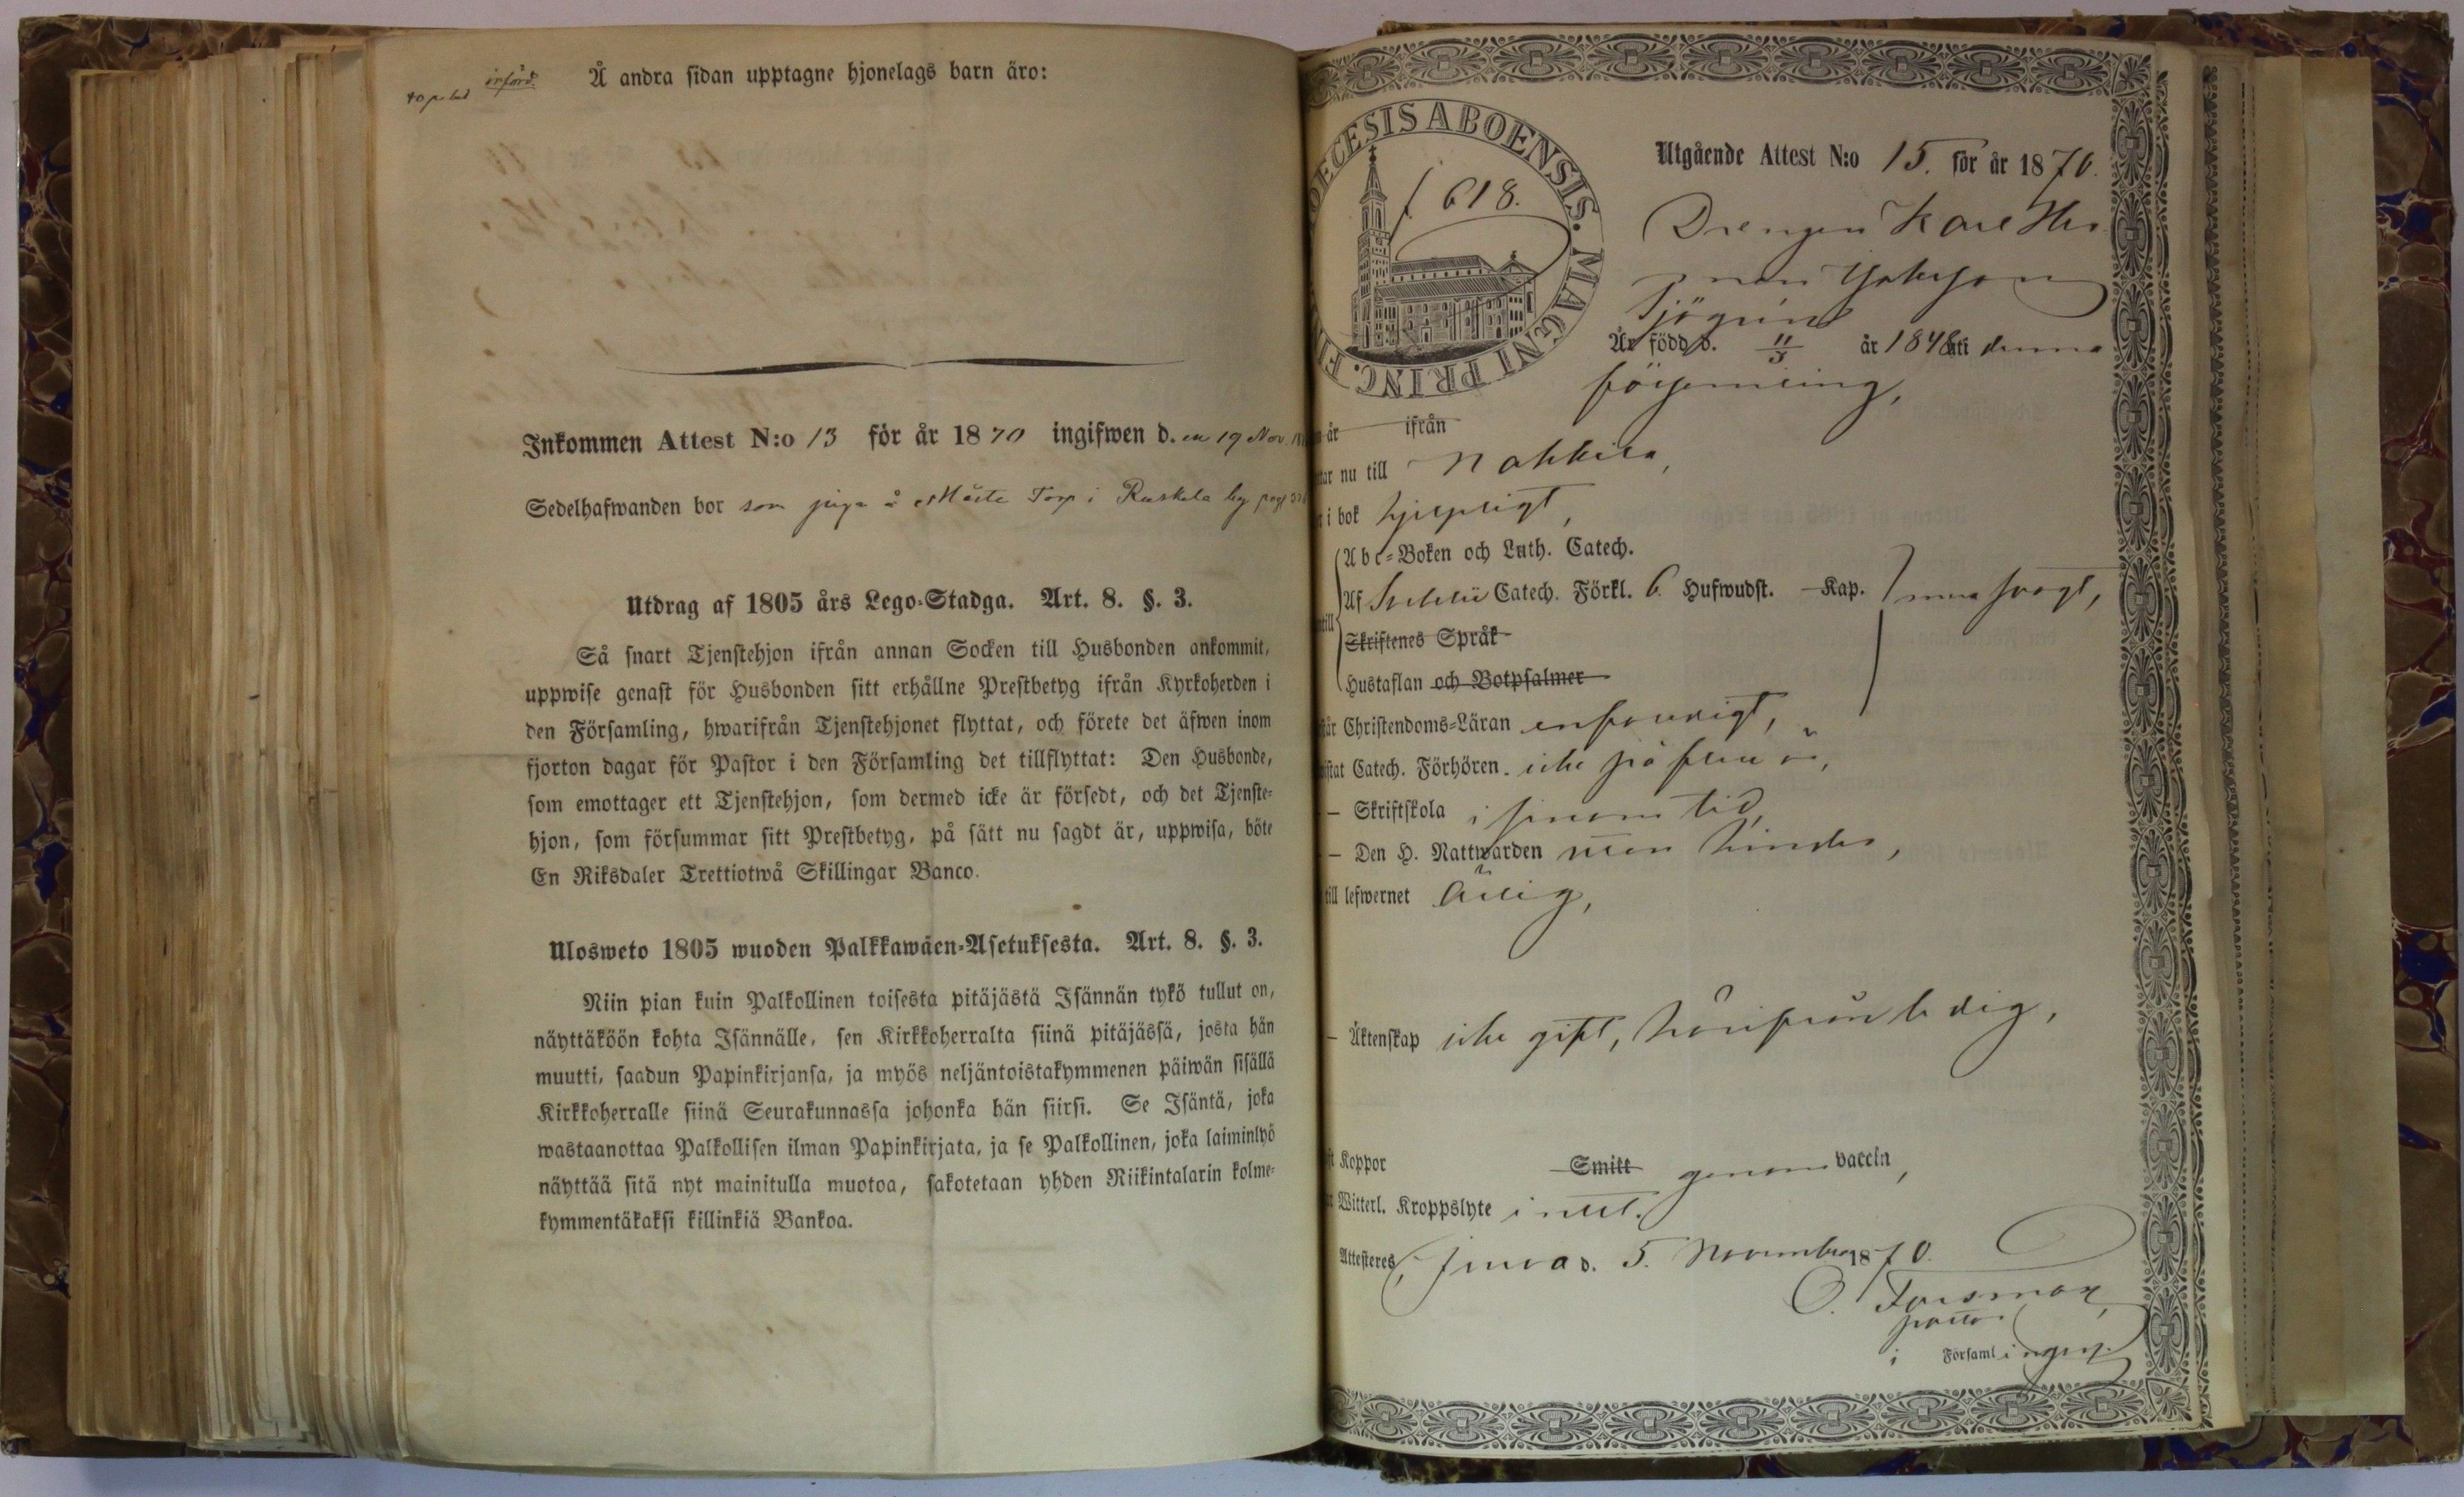 införd.
Å andra sidan upptagne hjonelags barn äro:
Inkommen Attest N:o 13 för år 1870 ingifwen d. en 19 Nov.
Sedelhafwanden bor som piga å Måste Torp i Ruskela by pag
Utdrag af 1805 års Lego-Stadga. Art. 8. §. 3.
Så snart Tjenstehjon ifrån annan Socken till Husbonden ankommit,
uppwise genast för Husbonden sitt erhållne Prestbetyg ifrån Kyrkoherden i
den Församling, hwarifrån Tjenstehjonet flyttat, och förete det äfwen inom
fjorton dagar för Pastor i den Församling det tillflyttat: Den Husbonde,
som emottager ett Tjenstehjon, som dermed icke är försedt, och det Tjenste-
hjon, som försummar sitt Prestbetyg, på sätt nu sagdt är, uppwisa, böte
En Riksdaler Trettiotwå Skillingar Banco.
Ulosweto 1805 wuoden Palkkawäen-Asetuksesta. Art. 8. §. 3.
Niin pian kuin Palkollinen toisesta pitäjästä Isännän tykö tullut on,
näyttäköön kohta Isännälle, sen Kirkkoherralta siinä pitäjässä, josta hän
muutti, saadun Papinkirjansa, ja myös neljäntoistakymmenen päiwän sisällä
Kirkkoherralle siinä Seurakunnassa johonka hän siirsi. Se Isäntä, joka
wastaanottaa Palkollisen ilman Papinkirjata, ja se Palkollinen, joka laiminlyö
näyttää sitä nyt mainitulla muotoa, sakotetaan yhden Riikintalarin kolme-
kymmentäkaksi killinkiä Bankoa.
OECESIS ABOENSIS. MAGNI PRINC. FI
f. 618.
Utgående Attest N:o 15. för år 1870.
Drengen Karl Her
man
Sjögren
Är född d. 11/5 år 1848 uti denna
församling,
år ifrån
nu till Nakkila,
i bok hjelpligt,
Abc-Boken och Luth. Catech.
Af Catech. Förkl. 6. Hufwudst. Kap. svagt,
Skriftenes Språk
Hustaflan och Botpsalmer
Christendoms-Läran enfaldigt,
Catech. Förhören icke på flere år,
Skriftskola i sinom tid,
Den H. Nattwarden utan hinder,
till lefwernet ärlig,
Äktenskap icke gift, härifrån ledig,
Koppor Smitt genom vaccin,
Witterl. Kroppslyte intet.
Attesteras, d. 5. November 1870.
O. Forsman
pastor
i Församlingen